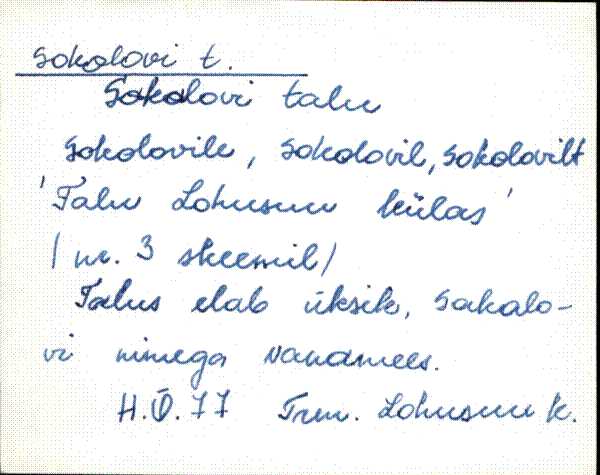 Sokolovi t.
Sokolovi talu
Sokolovile, Sokolovil, Sokolovilt
'Talu Lohusuu külas'
/ nr. 3 skeemil /
Talus elab üksik, Sakalo-
vi nimega vanamees.
H.Õ.77 Trm. Lohusuu k.